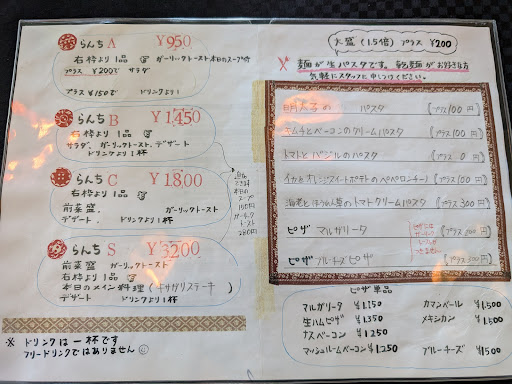 らんち A ¥950
右枠より1品 ガーリックトースト 本日のスープ付
プラス ¥200で サラダ
プラス ¥150で ドリンク1
らんち B ¥1,450
右枠より1品
サラダ、ガーリックトースト、デザート
ドリンクより1杯
らんち C ¥1,800
右枠より1品
前菜盛 ガーリックトースト
デザート、 ドリンクより1杯
追加
できます
本日の
スープ
150円
ガーリック
トースト
280円
らんち S ¥3200
前菜盛 ガーリックトースト
右枠より1品
本日のメイン料理
デザート ドリンクより1杯
※ ドリンクは一杯です
フリードリンクではありません
大盛 (1.5倍) プラス ¥200
麺が生パスタです。乾麺がお好きな方
気軽にスタッフに申しつけください。
明太子の パスタ (プラス100円)
キムチとベーコンのクリームパスタ (プラス100円)
トマトとバジルのパスタ (プラス 0円)
イカとオレンジスイートポテトのペペロンチーノ (プラス100円)
海老とほうれん草のトマトクリームパスタ (プラス300円)
ピザ マルゲリータ (プラス 200円)
ピザ ブルーチーズピザ (プラス300円)
ピザ 単品
マルガリータ ¥1,150
生ハムピザ ¥1,350
ナスベーコン ¥1,250
マッシュルームベーコン ¥1,250
カマンベール ¥1,500
メキシカン ¥1,500
ブルーチーズ ¥1500